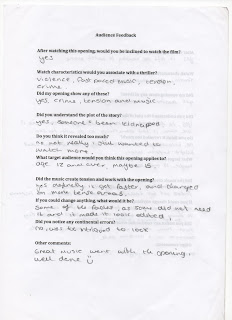 Audience Feedback
After watching this opening, would you be inclined to watch the film?
yes
What characteristics would you associate with a thriller?
violence, fast paced music, tension,
crime.
Did my opening show any of these?
yes, crime, tension and music
Did you understand the plot of the story?
yes, someone had been kidnapped
Do you think it revealed too much?
no not really, still wanted to
watch more.
What target audience would you think this opening applies to?
age 15 and over, maybe 18.
Did the music create tension and work with the opening?
yes definitely it got faster, and changed
in more tense areas.
If you could change anything, what would it be?
some of the fades, as some did not need
it and it made it look edited.
Did you notice any continual errors?
no,
Other comments:
Great music went with the opening,
well done